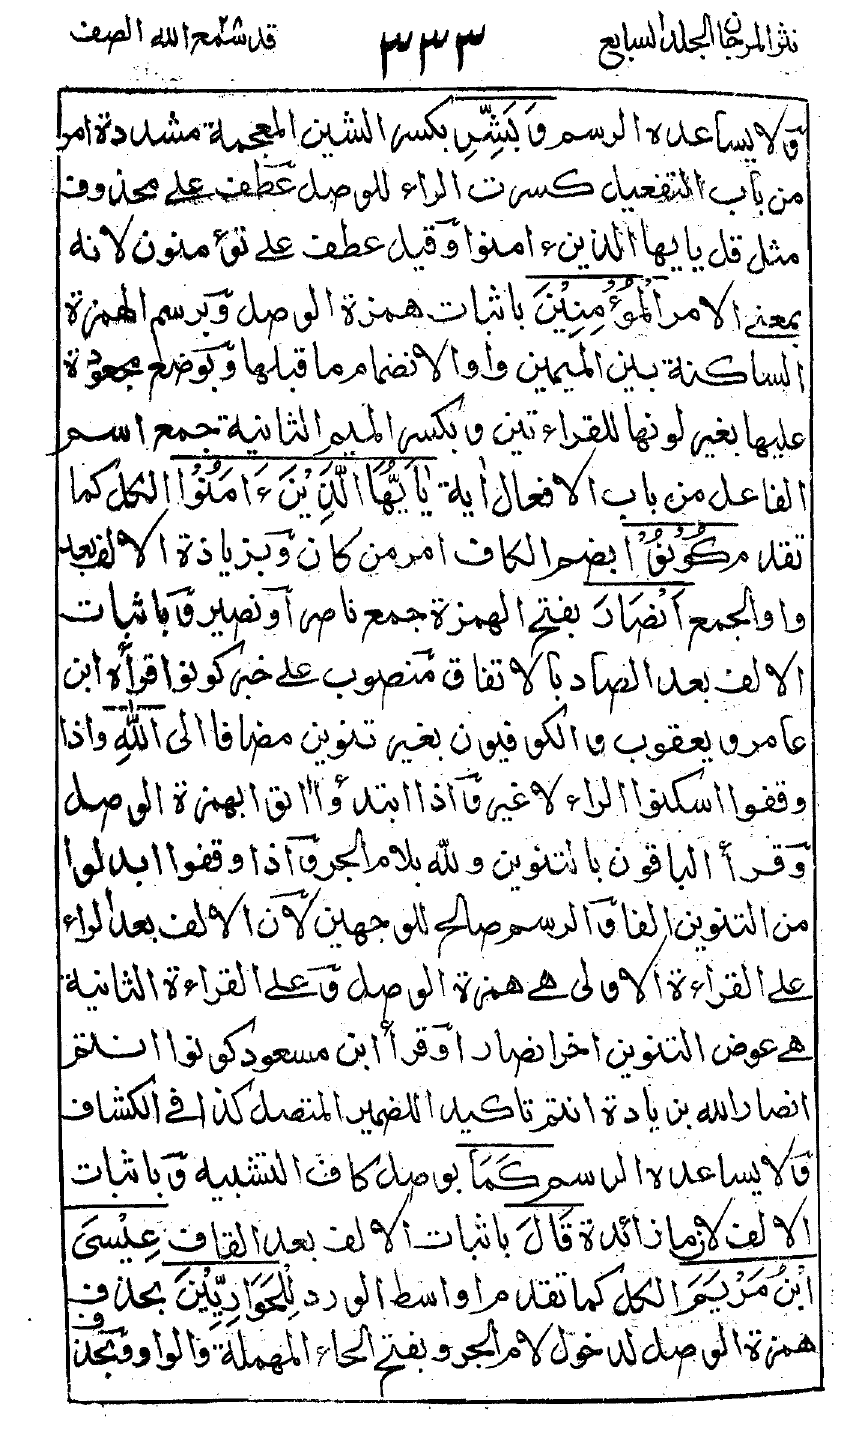 نثر المرجان الجلد السابع ٣٣٣ قد سمع الله الصف
ولا يساعده الرسم وَبَشِّرِ بكسر الشين المعجمة مشددة امر
من باب التفعيل كسرت الراء للوصل عطف على محذوف
مثل قل يايها الذين ءامنوا وقيل عطف على تؤمنون لانه
بمعنى الامر الْمُؤْمِنِيْنَ باثبات همزة الوصل وبرسم الهمزة
الساكنة بين الميمين واوا لانضمام ما قبلها وبوضع مجعودة
عليها بغير لونها للقراءتين وبكسر الميم الثانية جمع اسم
الفاعل من باب الافعال اية يٰاَيُّهَا الَّذِيْنَ ءَامَنُوْا الكل كما
تقدم كُوْنُوْا بضم الكاف امر من كان وبزيادة الالف بعد
واو الجمع اَنْصَارَ بفتح الهمزة جمع ناصر او نصير وباثبات
الالف بعد الصاد بالاتفاق منصوب على خبر كونوا قرأه ابن
عامر ويعقوب والكوفيون بغير تنوين مضافا الى اللهِ واذا
وقفوا اسكنوا الراء لا غير واذا ابتدؤا اتوا بهمزة الوصل
وقرأ الباقون بالتنوين ولله بلام الجر واذا وقفوا ابدلوا
من التنوين الفا والرسم صالح للوجهين لان الالف بعد الراء
على القراءة الاولى هي همزة الوصل وعلى القراءة الثانية
هي عوض التنوين اخر انصارا وقرأ ابن مسعود كونوا انتم
انصار الله بزيادة انتم تاكيد اللضمير المتصل كذا في الكشاف
ولا يساعده الرسم كَمَا بوصل كاف التشبيه وباثبات
الالف لان ما زائدة قَالَ باثبات الالف بعد القاف عِيْسَى
ابْنُ مَرْيَمَ الكل كما تقدم مرا واسط الورد لِلْحَوَارِيِّيْنَ بحذف
همزة الوصل لدخول لام الجر وبفتح الحاء المهملة والواو وبحذف